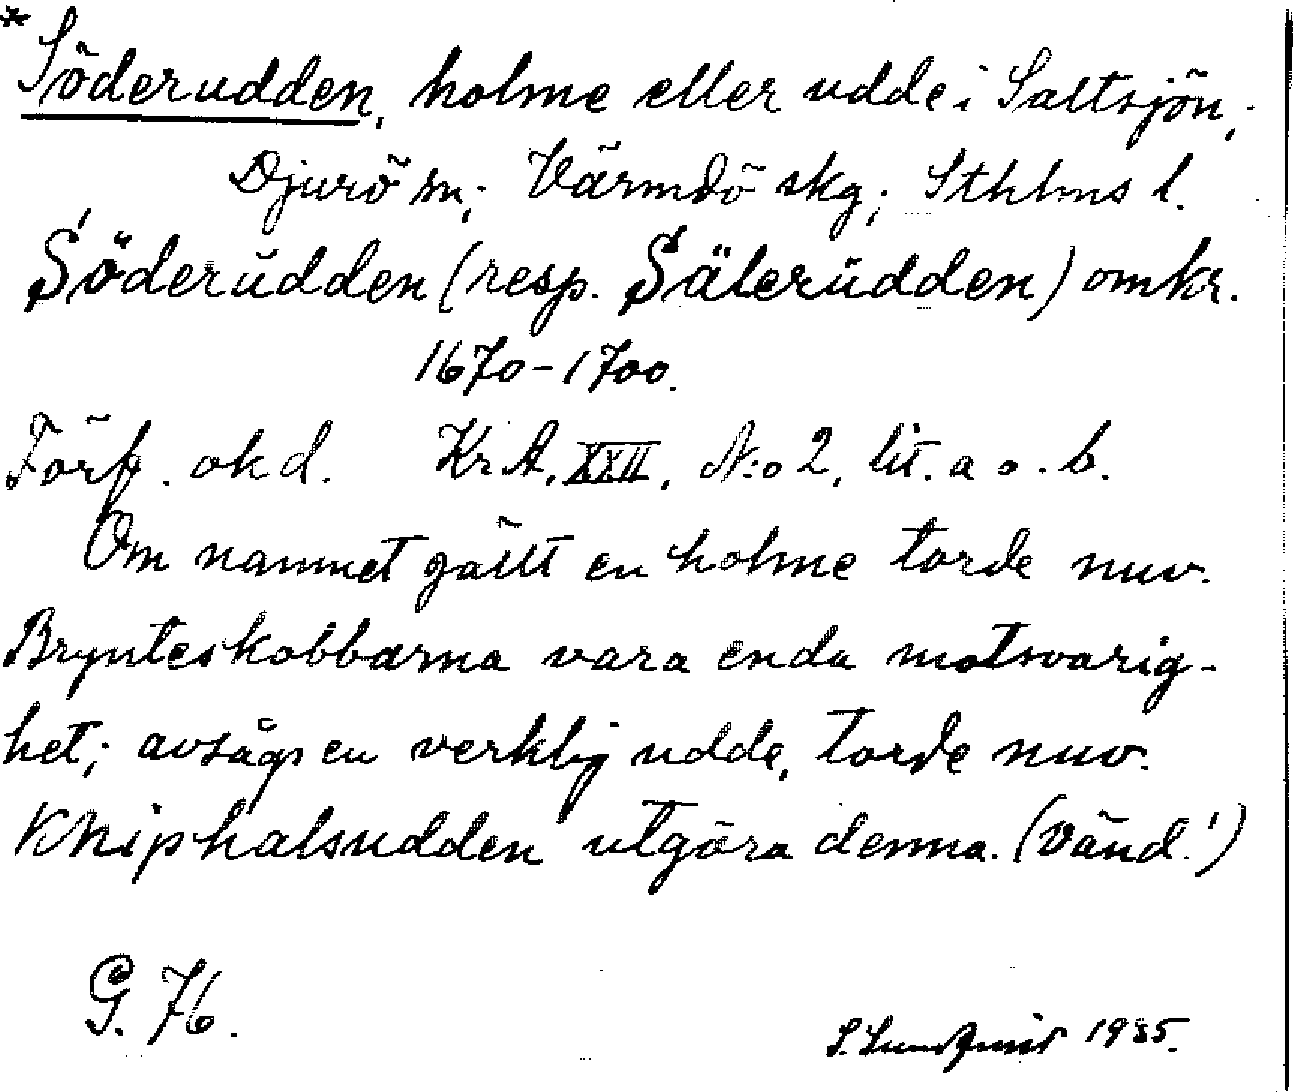 *Söderudden, holme eller udde i Saltsjön,
Djurö sn; Värmdö skg; Sthlms l.
Söderudden (resp. Säterudden) omkr.
1670-1700.
Förf. okd. KrA. XXII, N:o 2, lit. a o. b.
Om namnet gällt en holme torde nuv.
Brynteskobbarna vara enda motsvarig-
het; avsågs en verklig udde, torde nuv.
Kniphalsudden utgöra denna. (Vänd!)
G. 76.
S. 1935.